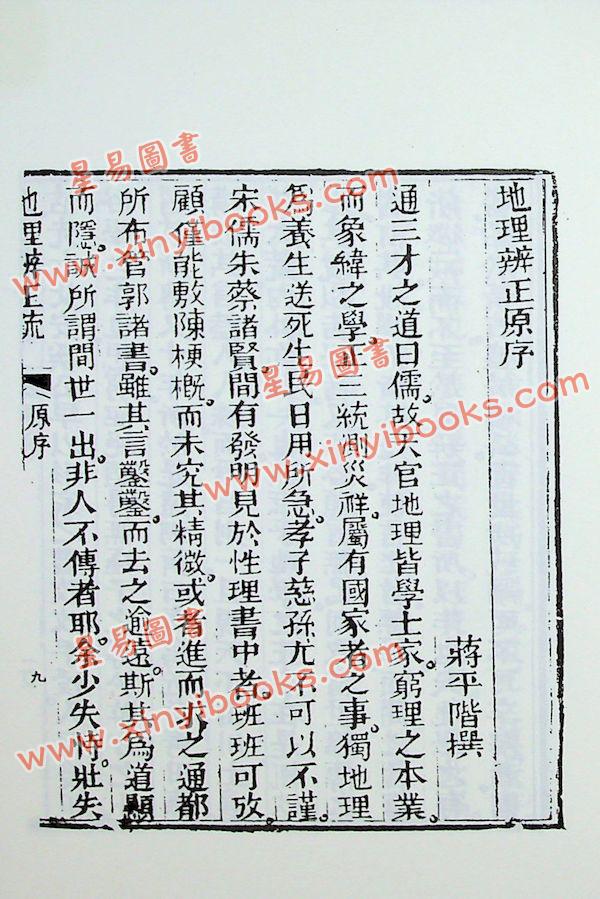 地理辨正原序
蔣平階撰
通三才之道曰儒。故天官地理皆學士家窮理之本業。
而象緯之學。正三統。測災祥。屬有國家者之事。獨地理
爲養生送死。生民日用所急。孝子慈孫尤不可以不謹。
宋儒朱蔡諸賢。間有發明見於性理書中者。班班可攷。
顧僅能敷陳梗概。而未究其精微。或者進而求之通都
所布管郭諸書。雖其言鑿鑿。而去之逾遠。斯其為道顯
而隱。誠所謂間世一出。非人不傳者耶。余少失恃。壯失
地理辨正疏
原序
九
星易圖書
www.xinyibooks.com
星易圖書
www.xinyibooks.com
星易圖書
www.xinyibooks.com